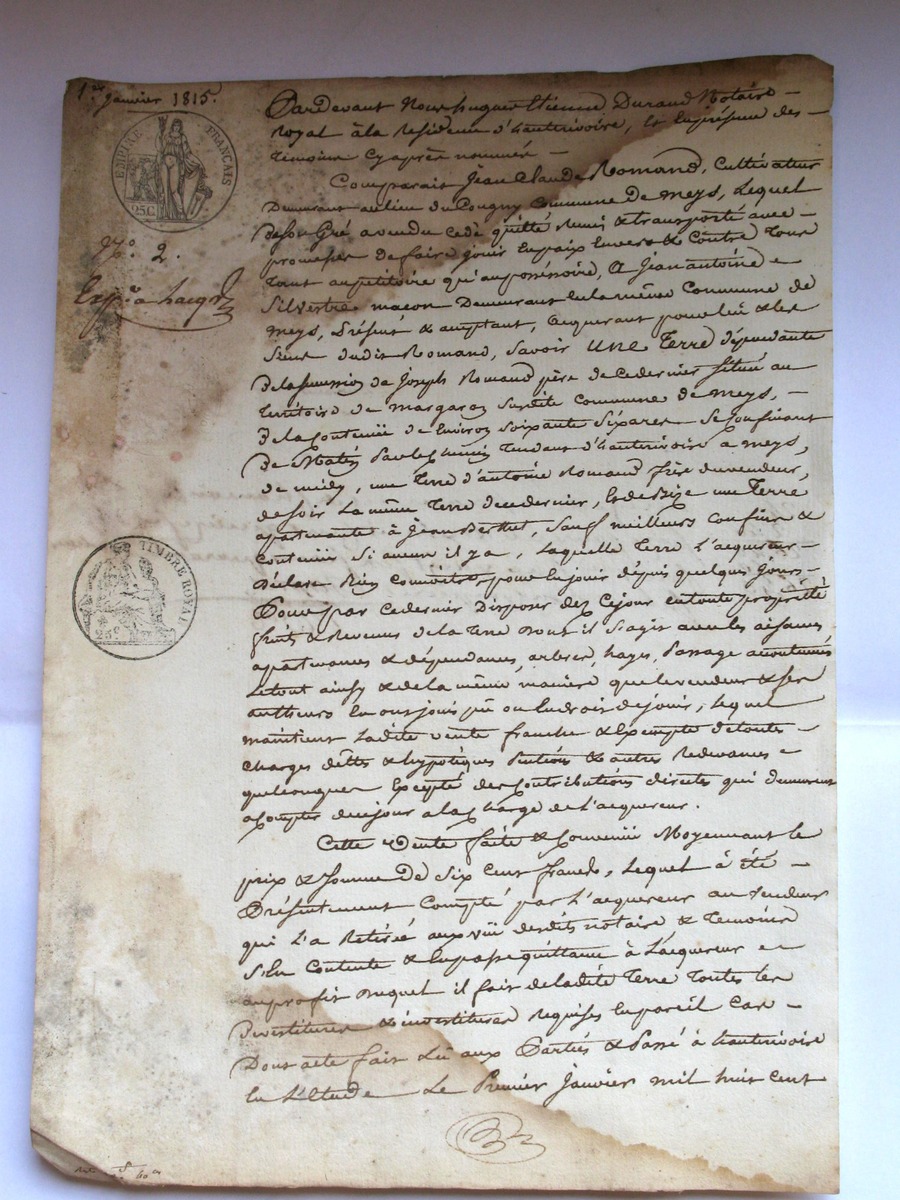 1er Janvier 1815.
EMPIRE FRANÇAIS
25C
N°. 2.
Exp.on
TIMBRE ROYAL
25c
Pardevant Nous hugues Etienne Durand Notaire
Royal à la Residence d'hauterivoire, & En présence des
temoins Cyaprès nommés
Comparait Jean Claude Romand, Cultivateur
Demeurant au lieu du Congny Commune De meys, Lequel
De son Gré a vendu cedé quitté Remis & transporté avec
promesse De faire jouir En paix Envers & Contre tous
tant au pétitoire qu'au possessoire, A Jean antoine
Silvestre maçon Demeurant En la même Commune de
meys, Présent & acceptant, acquerant pour lui & les
siens dudit Romand, Savoir UNE Terre dépendante
De la succession de Joseph Romand père de ce dernier Située au
territoire de margaron Susdite Commune de meys,
De la Contenüe de Environ Soixante Six ares Se Confinant
De Matin Par le Chemin Tendant d'hauterivoire a meys,
de midy, une Terre d'antoine Romand frère du vendeur,
de soir La même Terre de ce dernier, & de Bize une Terre
apartenante à Jean Berthet, Sauf meilleurs Confins &
Contenüe Si aucun il y a, Laquelle Terre L'acquereur
Déclare Bien Connoître pour En jouir dépuis quelques jours
Pour par ce dernier Disposer dez Cejour en toute propriété
fruits & Revenus De la Terre Dont il S'agit avec les aisances
apartenances & dépendances, arbres, hayes, Passage accoutumés
Le tout ainsy & de la même manière que le vendeur & ses
autheurs En ont joui pu ou Eu droit de jouir, Lequel
maintient Ladite vente franche & Exempte de toutes
Charges dêttes & hypotéques Pentions & autres Redevances
quelconques Excepté des Contributions directes qui demeurent
a Compter du jour a la Charge de L'acquereur.
Cette Vente faite & Convenüe Moyennant le
prix & Somme De Six Cent francs, Lequel à été
Présentement Compté par L'acquereur au vendeur
qui L'a Retirée aux vüe desdits notaire & Temoins
S'En Contente & En passe quittance à L'acquereur
au profit Duquel il fait de ladite Terre Toutes les
Devestitures & investitures Requises En pareil Cas
Dont acte fait Lû aux Parties & Passé à hauterivoire
En L'Etude Le Premier Janvier mil huit Cent